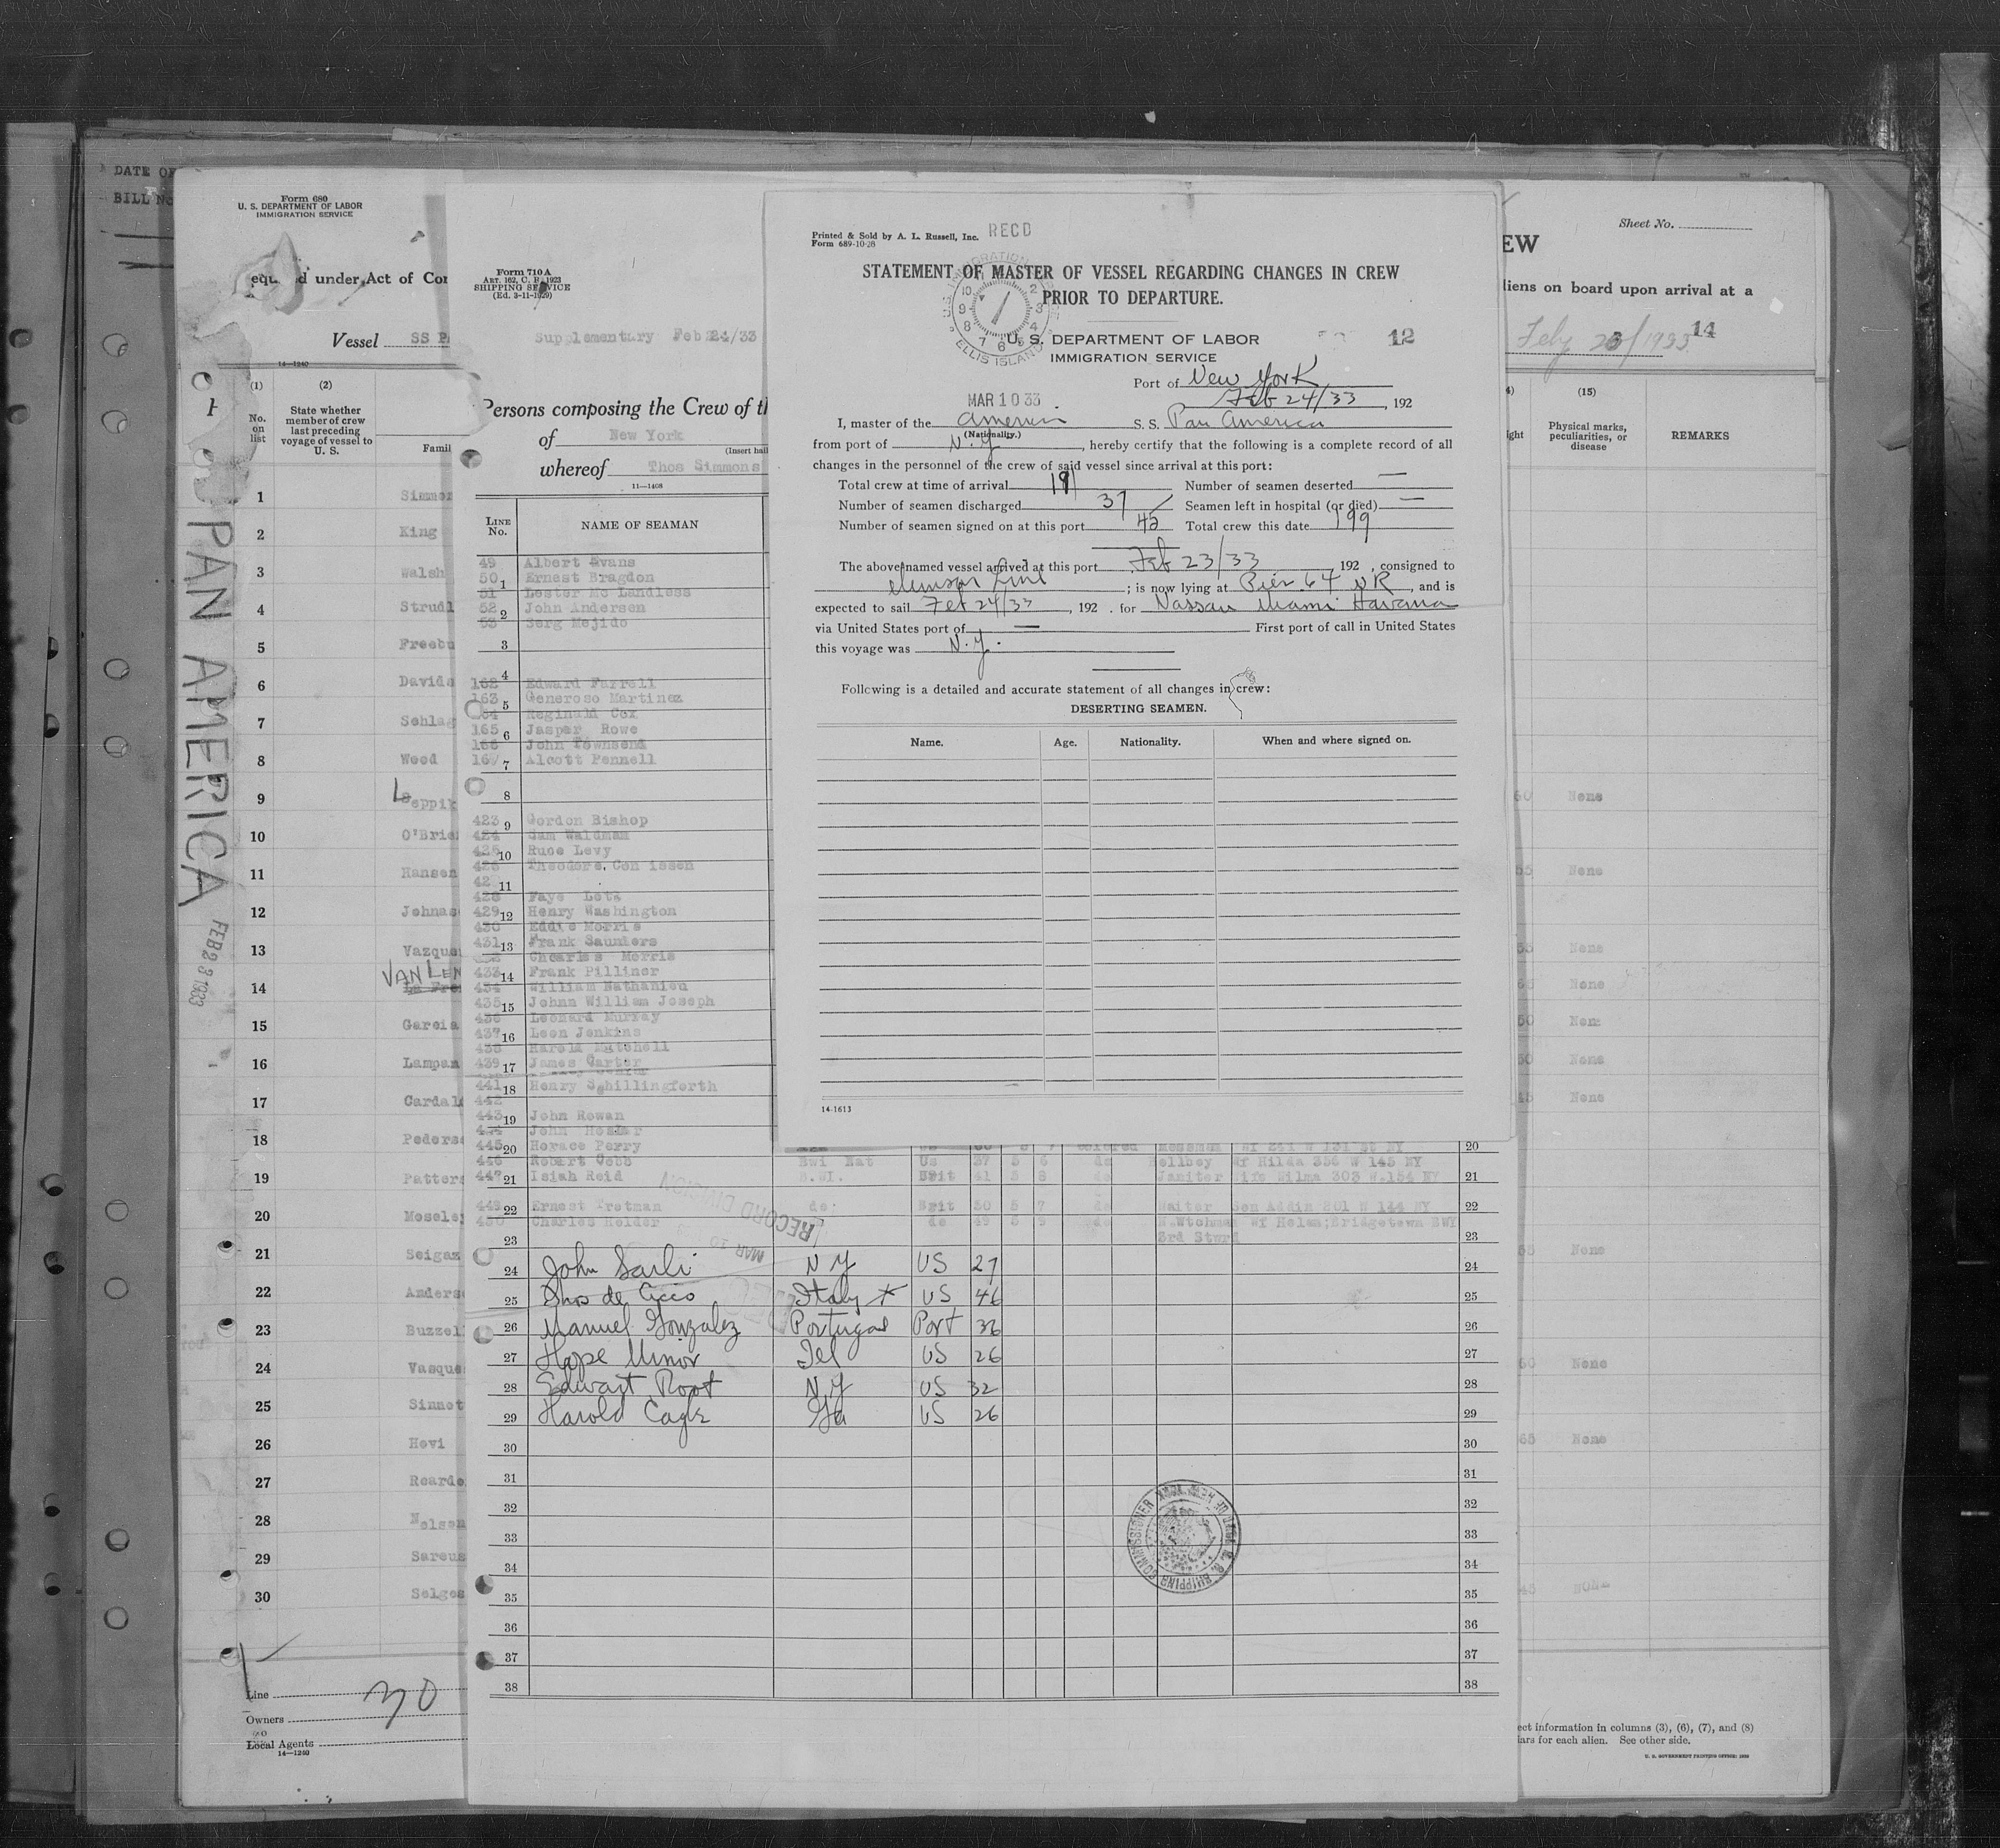 DATE OF
BILL No.
Form 680
U. S. DEPARTMENT OF LABOR
IMMIGRATION SERVICE
d under Act of Con
Vessel SS P
14-1240
(1)
No. on list
(2)
State whether member of crew last preceding voyage of vessel to U. S.
Famil
1 Simmon
2 King
3 Walsh
4 Strudl
5 Freebu
6 Davids
7 Schlag
8 Wood
9 Leppik
10 O'Brie
11 Hansen
12 Johnas
13 Vazque
VAN LEN
14
15 Garcia
16 Lampan
17 Cardal
18 Peders
19 Patters
20 Mosele
21 Seigas
22 Anders
23 Buzzel
24 Vasque
25 Sinnot
26 Hovi
27 Reardo
28 Nelsen
29 Sareus
30 Selges
Line
30
Owners
Local Agents
14-1240
PAN AMERICA
FEB 23 1933
Form 710 A
ART. 162, C. R. 1923
SHIPPING SERVICE
(Ed. 3-11-1929)
Supplementary Feb 24/33
Persons composing the Crew of th
of New York
(Insert hail
whereof Thos Simmons
11-1408
LINE No.
NAME OF SEAMAN
49 Albert Evans
50 1 Ernest Bragdon
51 Lester Mc Landless
52 2 John Andersen
53 Serg Mejido
3
4
162 Edward Farrell
163 5 Generoso Martinez
164 Reginald Cox
165 6 Jasper Rowe
166 John Townsend
167 7 Alcott Pennell
8
423 9 Gordon Bishop
424 Sam Waldman
425 10 Ruoe Levy
426 Theodore
42 11
428 Faye Lota
429 12 Henry Washington
430 Eddie Morris
431 13 Frank Saunders
Charles Morris
433 14 Frank Pilliner
434 William Nathaniel
435 15 Johnn William Joseph
436 Leonard Murray
437 16 Leon Jenkins
438 Harold Mitchell
439 17 James Carter
441 18 Henry Schillingforth
442
443 19 John Rowan
444 John Hosler
445 20 Horace Perry Us colored Messman Wf 241 W 131 st NY 20
446 Robert Cobb Bwi Nat Us 37 5 6 do Bellboy Wf Hilda 356 W 145 NY
447 21 Isiah Reid B.WI. Brit 41 5 8 do Janiter Wife Wilma 303 W.154 NY 21
449 22 Ernest Trotman do Brit 30 5 7 do Waiter Son Addin 201 W 144 NY 22
450 Charles Holder do 49 5 9 do N.Wtchman Wf Helen;Bridgetown BWI
23 3rd Stwrd 23
RECORD DIVISION
MAR 10 3
24 John Sarli N Y US 27 24
25 Thos de Cicco Italy * US 46 25
26 Manuel Gonzalez Portugal Port 36 26
27 Hope Minor Del US 26 27
28 Edwart Root N Y US 32 28
29 Harold Cagle Ga US 26 29
30 30
31 31
32 32
33 33
34 34
35 35
36 36
37 37
38 38
Printed & Sold by A. L. Russell, Inc.
Form 689-10-28
RECD
STATEMENT OF MASTER OF VESSEL REGARDING CHANGES IN CREW
PRIOR TO DEPARTURE.
U. S. DEPARTMENT OF LABOR
IMMIGRATION SERVICE
12
ELLIS ISLAND
Port of New York
MAR 10 33
Feb 24/33, 192
I, master of the American S. S. Pan America
(Nationality.)
from port of N.Y., hereby certify that the following is a complete record of all
changes in the personnel of the crew of said vessel since arrival at this port:
Total crew at time of arrival 191 Number of seamen deserted —
Number of seamen discharged 37 Seamen left in hospital (or died) —
Number of seamen signed on at this port 45 Total crew this date 199
The above named vessel arrived at this port Feb 23/33, 192 , consigned to
Munson Line; is now lying at Pier 64 NR, and is
expected to sail Feb 24/33, 192 . for Nassau Miami Havana
via United States port of — First port of call in United States
this voyage was N.Y.
Following is a detailed and accurate statement of all changes in crew:
DESERTING SEAMEN.
Name. Age. Nationality. When and where signed on.
14-1613
Sheet No.
EW
liens on board upon arrival at a
Feby 23/1933 14
(15)
Physical marks, peculiarities, or disease
REMARKS
None
None
None
None
None
None
None
None
None
None
None
ect information in columns (3), (6), (7), and (8)
lars for each alien. See other side.
U. S. GOVERNMENT PRINTING OFFICE